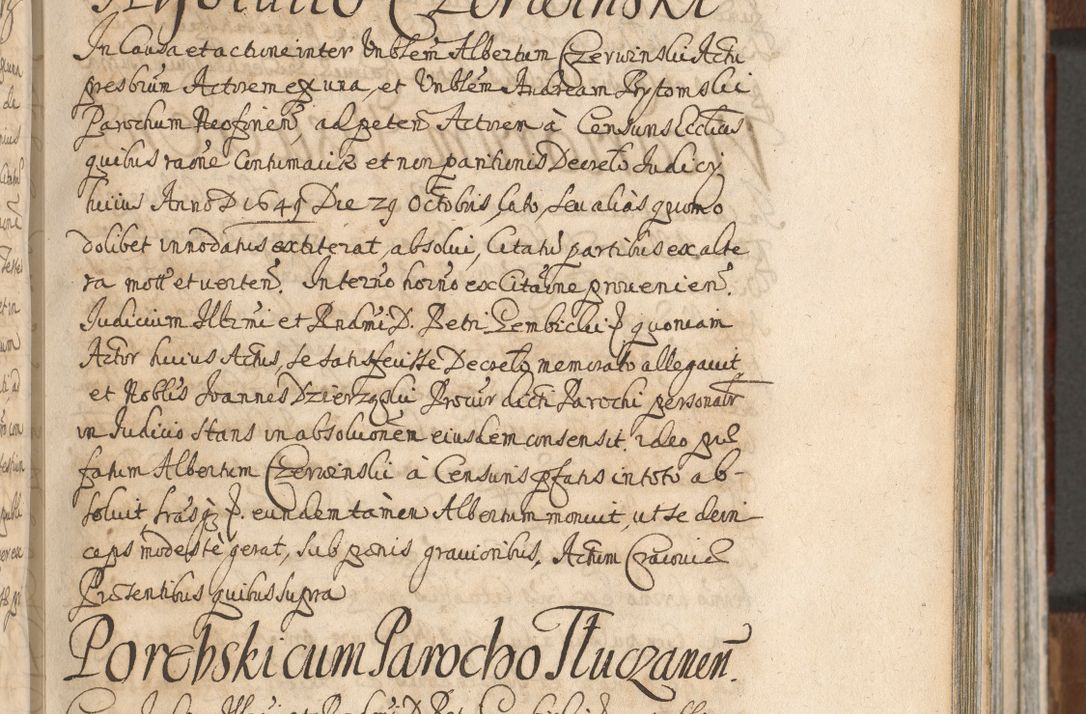 Absolutio Czerwinski
In Causa et actione inter Vnblem̃ Albertum Czerwinski Actu
presbrum Actorem ex una, et Vnblem̃ Andream Bytomski
Parochum Reoſinen̄, ad peten̄ Actoren à Censuris Ecclīus
quibus raōne Contumaciæ et non paritionis Decreto Judicij
huius Anno D 1649 Die 29 Octobris, lato, seu alias quomo
dolibet innodatus extiterat, absolui, Citatū partibus ex alte
ra mott et uerten̄. In terno horno ex Citaōne prouenien̄.
Judicium Illrmi et Rndmi D. Petri Gembicki P quoniam
Actor huius Actus, se satisfecisse Decreto memorato allegauit
et Noblīs Joannes Dzierzgski Procur dicti Parochi personatr
in Judicio stans in absolūonem eiusdem consensit. ideo præ
fatum Albertum Czerwinski à Censuris pfatis in toto ab-
soluit, fras P. eundem tamen Albertum monuit, ut se dein
ceps modeste gerat, sub pœnis grauioribus. Actum Cracouiæ
Præsentibus quibus supra
Porębski cum Parocho Tłuczanen̄.